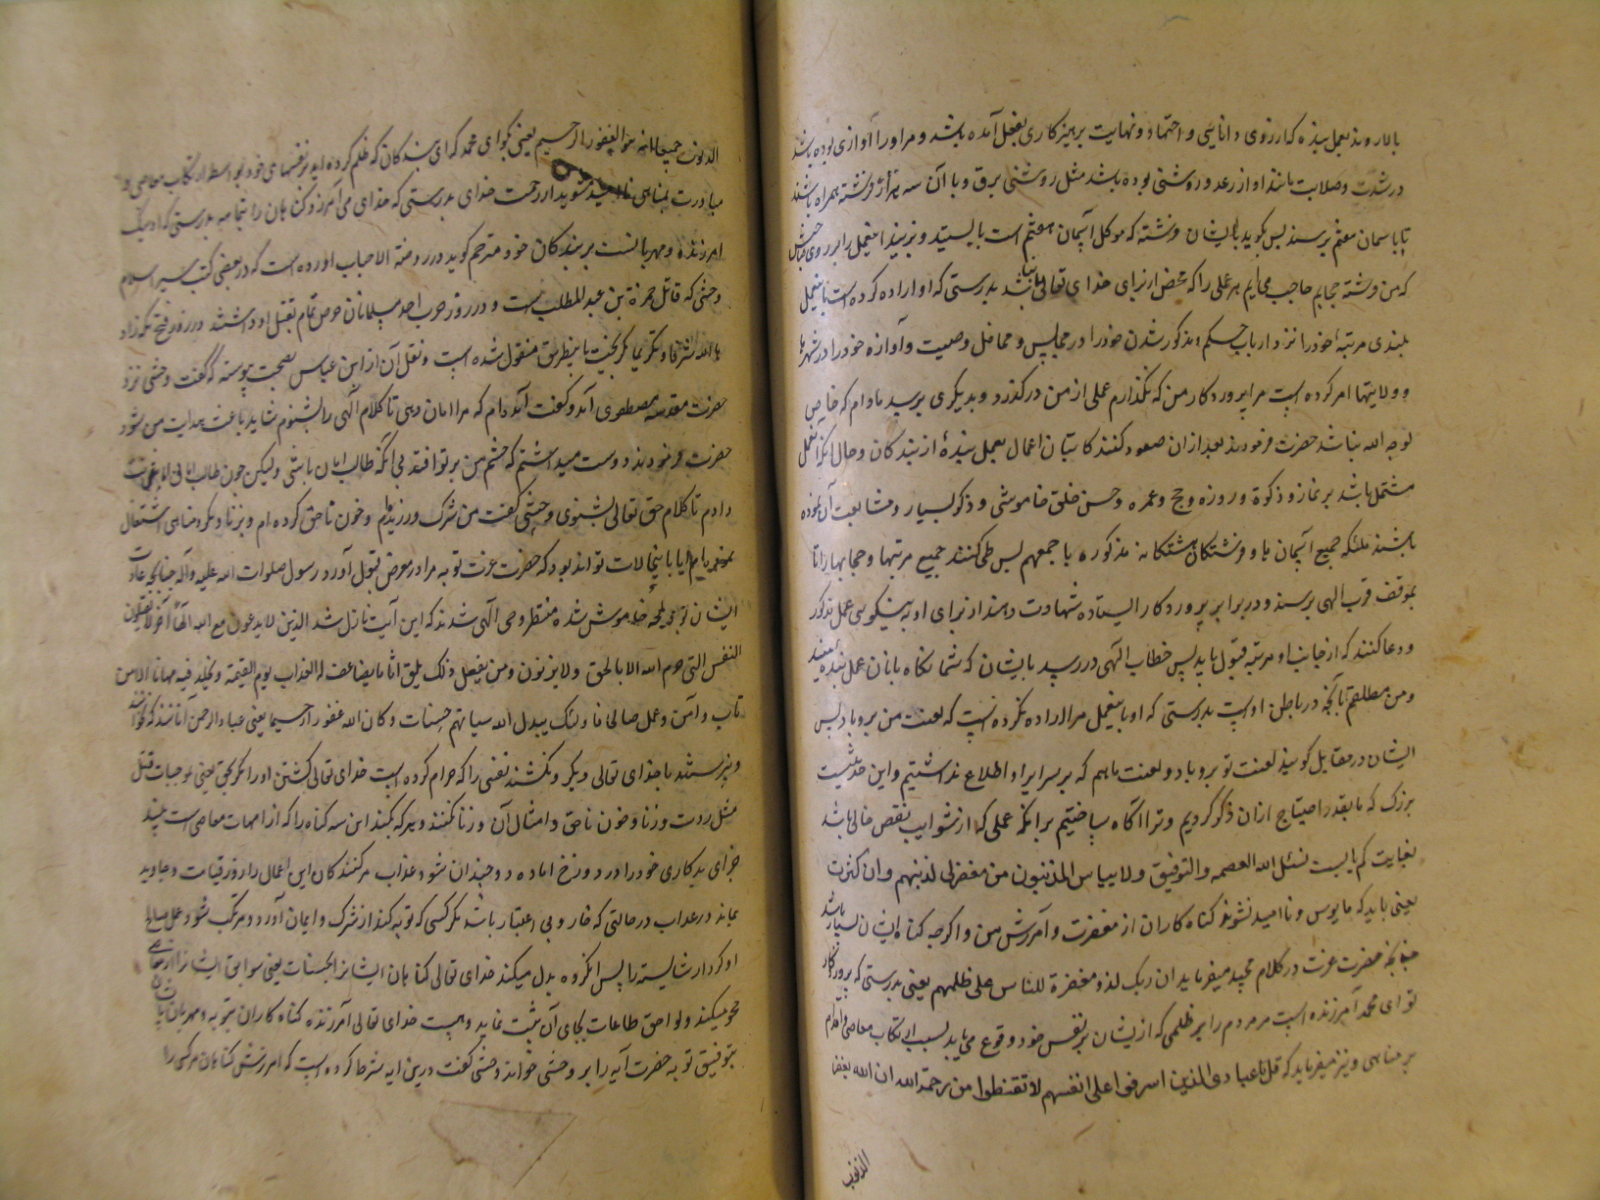 بالا روند بعمل بنده که از روی دانایی و اجتهاد و نهایت پرهیزکاری بفعل آمده باشد و مر او را آوازی بوده باشد
در شدت و صلابت مانند آواز رعد و روشنی بوده باشد مثل روشنی برق و با آن سه هزار فرشته همراه باشند
تا باسمان هفتم برسند پس بکوید بایشان فرشته که موکل آسمان هفتم است بایستید و بزنید این عمل را بر روی صاحبش
که من فرشته حجابم حاجب می آیم هر عملی را که محض از برای خدای تعالی نباشد بدرستی که او اراده کرده است باین عمل
بلندی مرتبه خود را نزد ارباب حکم و مذکور شدن خود را در مجالس و محافل وصیت و آوازه خود را در شهرها
و ولایتها امر کرده است مرا پروردکار من که نکذارم عملی از من درکذرد و بدیکری برسد مادام که خالص
لوجه الله نباشد حضرت فرمودند بعد از ان صعود کنند کاتبان اعمال بعمل بنده از بندکان و حال آنکه آن عمل
مشتمل باشد بر نماز و زکوة و روزه و حج و عمره و حسن خلق و خاموشی و ذکر بسیار و مشایعت آن نموده
باشند ملئکه جمیع آسمان ها و فرشتکان هشتکانه مذکوره با جمعهم پس طی کنند جمیع مرتبها و حجابها را تا
بموقف قرب الهی برسند و در برابر پروردکار ایستاده شهادت دهند از برای او به نیکویی عمل مذکور
و دعا کنند که از جانب او مرتبه قبول یابد پس خطاب الهی در رسد بایشان که شما نکاه بانان عمل بنده منید
و من مطلعم بآنچه در باطن اوست بدرستی که او باین عمل مرا اراده نکرده است که لعنت من بر و باد پس
ایشان در مقابل کویند لعنت تو بر و باد و لعنت ما هم که بر سرایر او اطلاع نداشتیم و این حدیثیست
بزرک که ما بقدر احتیاج از ان ذکر کردیم و ترا آکاه ساختیم بر انکه عملی که از شوایب نقص خالی باشد
بغایت کم یابست نسئل الله العصمه و التوفیق و لا ییاس المذنبون من مغفرتی لذنبهم و ان کثرت
یعنی باید که مایوس و ناامید نشوند کناه کاران از مغفرت و آمرزش من و اکرچه کناه ایشان بسیار باشد
چنانچه حضرت عزت در کلام مجید میفرماید ان ربک لذو مغفرة للناس علی ظلمهم یعنی بدرستی که پروردکار
تو ای محمد آمرزنده است مر مردم را بر ظلمی که از ایشان بر نفس خود وقوع می یابد بسبب ارتکاب معاصی و اقدام
بر مناهی و نیز میفرماید که قل یا عبادی الذین اسرفوا علی انفسهم لا تقنطوا من رحمة الله ان الله یغفر
الذنوب
الذنوب جمیعا انه هو الغفور الرحیم یعنی بکو ای محمد که ای بندکان که ظلم کرده اید بر نفسهای خود بواسطه ارتکاب معاصی و
مبادرت بمناهی ناامید مشوید از رحمت خدای بدرستی که خدای می آمرزد کناهان را بتمامه بدرستی که اوست
امرزنده و مهربانست بر بندکان خود مترجم کوید در روضة الاحباب اورده است که در بعضی کتب سیر اسلام
وحشی که قاتل حمزة بن عبد المطلب است و در روز حرب احد مسلمانان حرص تمام بقتل او داشتند در روز فتح مکه زاد
ها الله شرفا و تکریما کریخت باینطریق منقول شده است و نقل آن از ابن عباس بصحت پیوسته که گفت وحشی نزد
حضرت مقدسه مصطفوی آمد و گفت آمده ام که مرا امان دهی تا کلام الهی را بشنوم شاید باعث هدایت من شود
حضرت فرمودند دوست میداشتم که چشم من بر تو افتد بی آنکه طالب امان باشی ولیکن چون طالب امانی
دادم تا کلام حق تعالی بشنوی وحشی گفت من شرک ورزیده ام و خون ناحق کرده ام و بزنا و دیکر مناهی اشتغال
نموده ام آیا با اینحالات تواند بود که حضرت عزت توبه مرا در معرض قبول آورد رسول صلوات الله علیه و آله چنانچه عادت
ایشان بود لمحه خاموش شده منتظر وحی الهی شدند که این آیت نازل شد الذین لا یدعون مع الله الها آخر و لا یقتلون
النفس التی حرم الله الا بالحق و لا یزنون و من یفعل ذلک یلق اثاما یضاعف له العذاب یوم القیمة و یخلد فیه مهانا الا من
تاب و آمن و عمل صالحا فاولئک یبدل الله سیاتهم حسنات و کان الله غفورا رحیما یعنی عباد الرحمن آنانند که نخوانند
و نپرستند با خدای تعالی دیکر و نکشند نفسی را که حرام کرده است خدای تعالی کشتن او را مکر بحق یعنی موجبات قتل
مثل ردت و زنا و خون ناحق و امثال آن و زنا نکنند و هر که بکند این سه کناه را که از امهات معاصی است بیند
جزای بدکاری خود را و در دوزخ اماده و دو چندان شود عذاب مر کنندکان این اعمال را در روز قیامت و جاوید
بماند در عذاب در حالتی که خار و بی اعتبار باشد مکر کسی که توبه کند از شرک و ایمان آورد و مرتکب شود عمل صالح
او کردار شایسته را پس آنکروه بدل میکند خدای تعالی کناهان ایشانرا بحسنات یعنی سوابق ایشانرا از معاصی
محو میکند و لواحق طاعات بجای آن ثبت نماید و هست خدای تعالی آمرزنده کناه کاران بتوبه و مهربان بایشان
بتوفیق توبه حضرت آیه را بر وحشی خواند وحشی گفت درین ایه شرط کرده است که امرزش کناهان مر کسی را